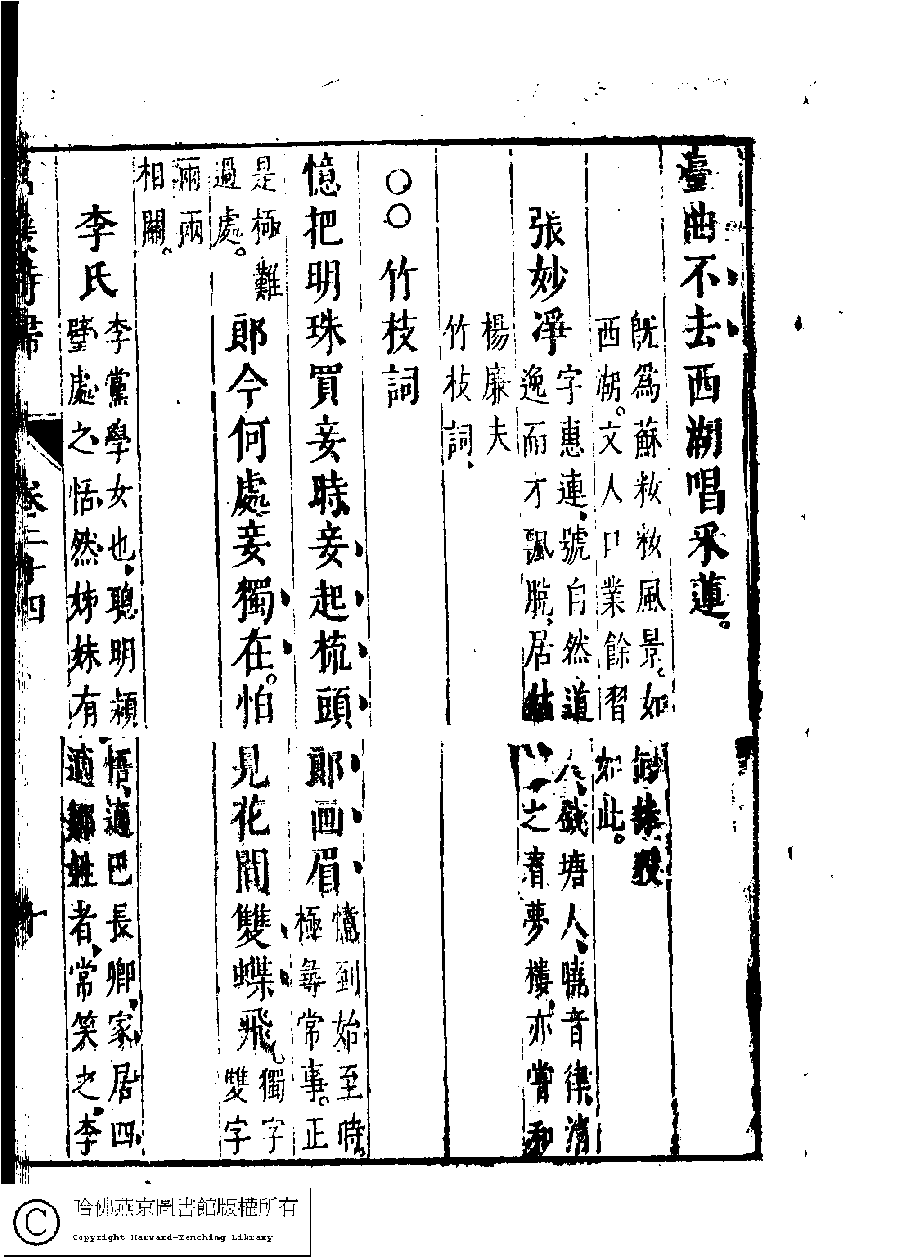 臺曲不去西湖唱采蓮。
既爲蘇妝妝風景。如
西湖。文人口業餘習如此。
張妙淨
字惠連、號自然道人、錢塘人、曉音律、清
逸而才飄脫、居
之春夢樓、亦嘗和
楊廉夫
竹枝詞、
○○竹枝詞
憶把明珠買妾時、妾起梳頭郎画眉
憶到始至時。
極尋常事。正
是極難
過處。
郎今何處妾獨在。怕見花間雙蝶飛
獨字
雙字
兩兩
相關。
李氏
李黨學女也、聰明穎悟、適巴長卿、家居四
壁處之恬然姊妹有適鄒姓者、常笑之、李
卷三十四
十
哈佛燕京圖書館版權所有
Copyright Harvard-Yenching Library